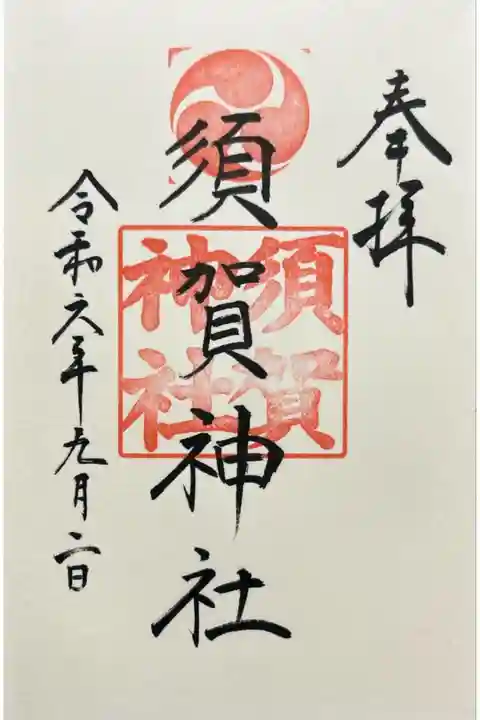 奉拝
須賀神社
須賀
神社
令和六年元月二日